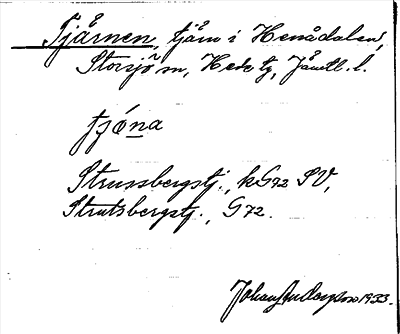 Tjärnen, tjärn i Henådalen,
Storsjö sn, Hede tg, Jämtl. l.
tjǫ́na
Strussbergstj., kG72 SV,
Strutsbergstj., G72.
Johan Anderson 1933.